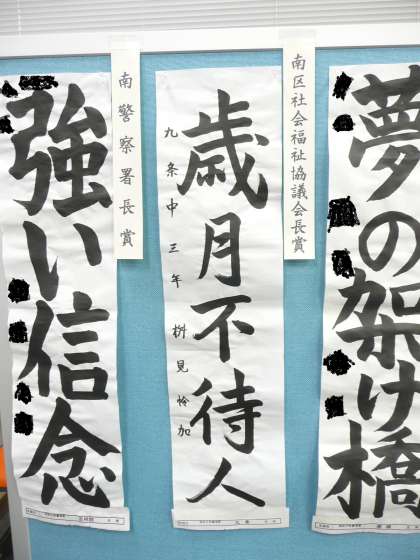 夢の架け橋
南区社会福祉協議会長賞
歳月不待人
九条中三年 桝見怜加
南警察署長賞
強い信念